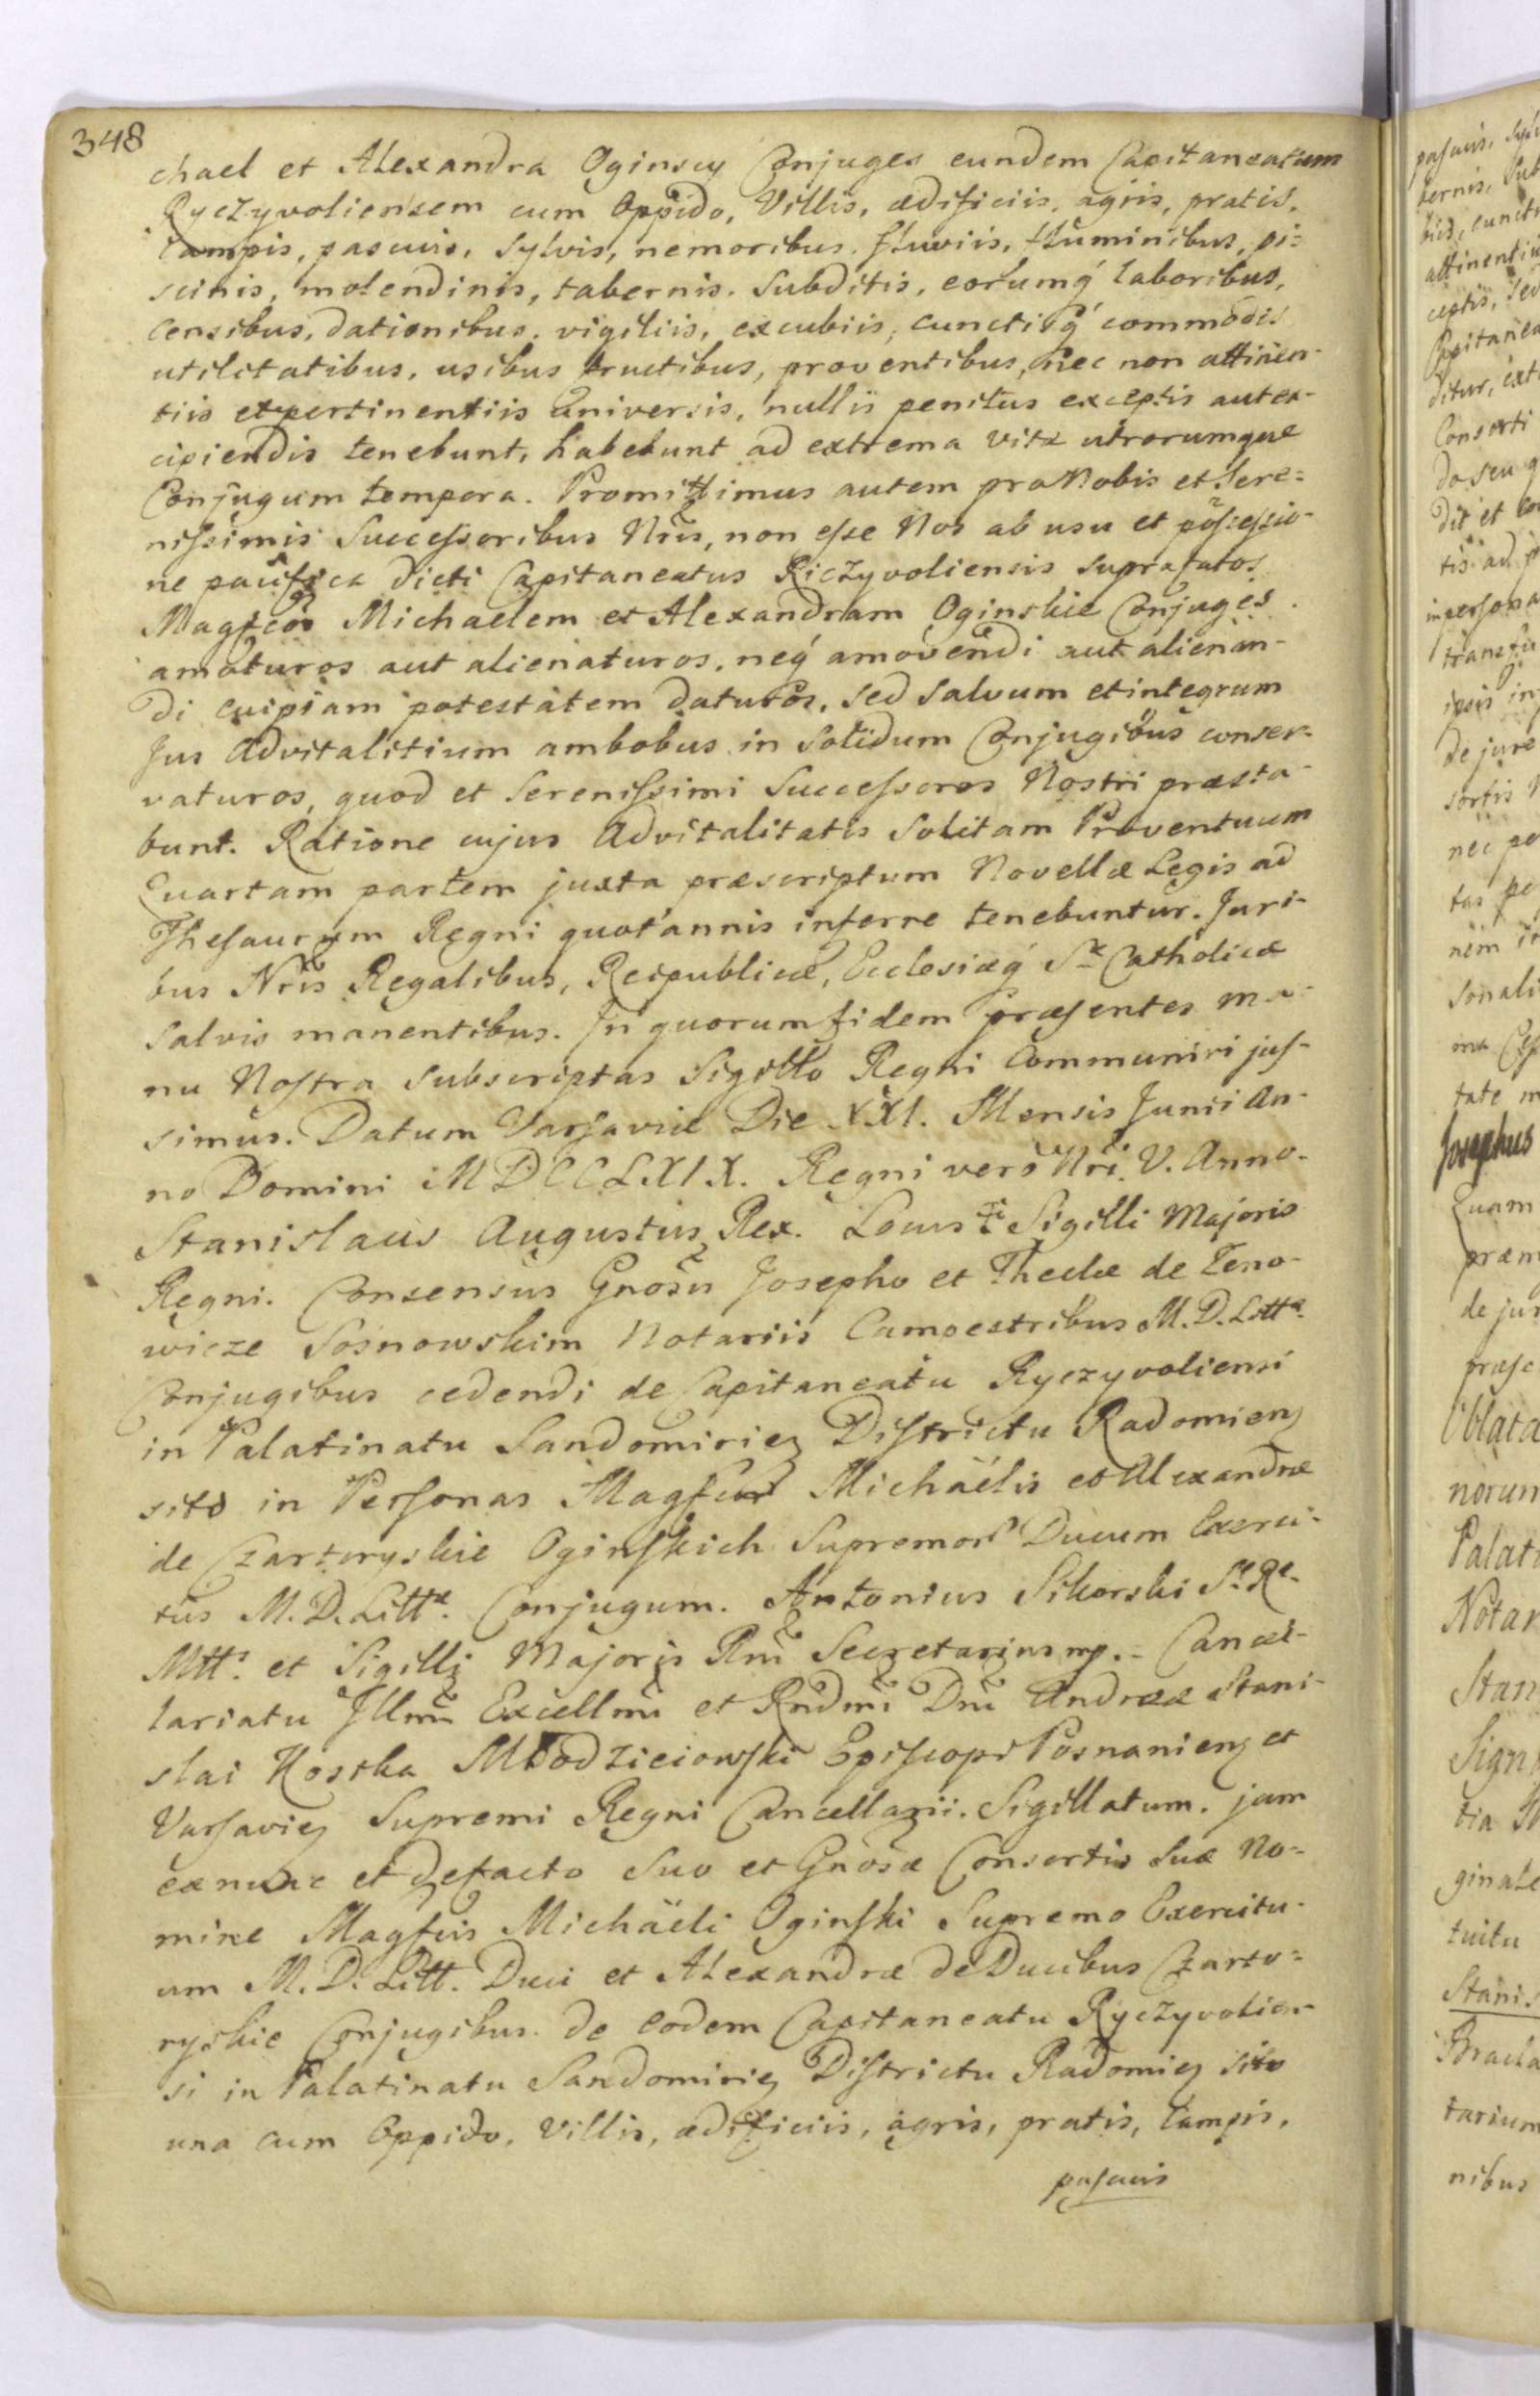 348
chael et Alexandra Oginscy Conjuges eundem Capitaneatum
Ryczyvoliensem cum Oppido, Villis, ædificiis, agris, pratis,
Campis, pascuis, Sylvis, nemoribus. fluviis, fluminibus, pi=
scinis, molendinis, tabernis. Subditis, eorumq́ laboribus,
Censibus, dationibus. vigiliis, excubiis, cunctisq́ commodis
utilitatibus, usibus fructibus, proventibus, nec non attinen-
tiis et pertinentiis Universis, nullis penitus exceptis aut ex-
cipiendis tenebunt, habebunt ad extrema vitæ utrorumque
Conjugum tempora. Promittimus autem pro Nobis et Sere=
nissimis Successoribus Nris, non esse Nos ab usu et possessio-
ne pacifica dicti Capitaneatus Riczyvoliensis Suprafatos
Magfcos Michaelem et Alexandram Oginskie Conjuges.
amoturos aut alienaturos, neq́ amovendi aut alienan-
di cuipiam potestatem daturos, sed salvum et integrum
Jus Advitalitium ambobus in Solidum Conjugibus conser-
vaturos, quod et Serenissimi Successores Nostri præsta-
bunt. Ratione cujus Advitalitatis Solitam Proventuum
Quartam partem juxta præscriptum Novellæ Legis ad
Thesaurum Regni quotannis inferre tenebuntur. Juri-
bus Nris Regalibus, Reipublicæ, Ecclesiæq́ Sæ Catholicæ
salvis manentibus. In quorum fidem præsentes ma-
nu Nostra Subscriptas Sigillo Regni Communiri jus-
simus. Datum Varsaviæ Die XXI. Mensis Junii An-
no Domini MDCCLXIX. Regni vero Nri. V. Anno.
Stanislaus Augustus Rex. Locus Sigilli Majoris
Regni. Consensus Gnosis Josepho et Theclæ de Zeno-
wicze Sosnowskim Notariis Campestribus M. D. Littæ.
Conjugibus cedendi de Capitaneatu Ryczyvoliensi
in Palatinatu Sandomirieɳ Districtu Radomienɳ
sito in Personas Magfcor Michäelis et Alexandræ
de Czartoryskie Oginskich Supremor Ducum Exerci-
tus M. D. Littæ. Conjugum. Antonius Sikorski Sæ Ræ
Mttis et Sigilli Majoris Rni Secretarius mp. - Cancel-
lariatu Illmi Excellmi et Rndmi Dni Andreæ Stani-
slai Kostka Młodzieiowski Episcopi Posnanienɳ et
Varsavieɳ Supremi Regni Cancellarii. Sigillatum. jam
ex nunc et de facto suo et Gnosæ Consortis suæ No=
mine Magfcis Michäeli Oginski Supremo Exercitu-
um M. D. Litt. Duci et Alexandræ de Ducibus Czarto=
ryskie Conjugibus. de eodem Capitaneatu Ryczyvolien-
si in Palatinatu Sandomirieɳ Districtu Radomieɳ sito
una cum Oppido, Villis, ædificiis, agris, pratis, campis,
pascuis